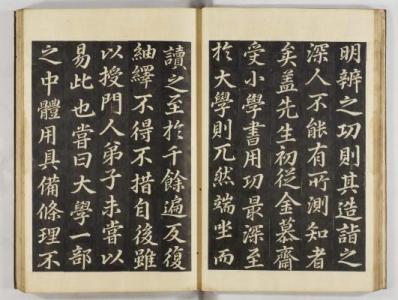 明辨之功則其造詣之
深人不能有所測知者
矣盖先生初從金慕齋
受小學書用功最深至
於大學則兀然端坐而
讀之至於千餘遍反復
紬繹不得不措自後雖
以授門人弟子未嘗以
易此也嘗曰大學一部
之中體用具備條理不